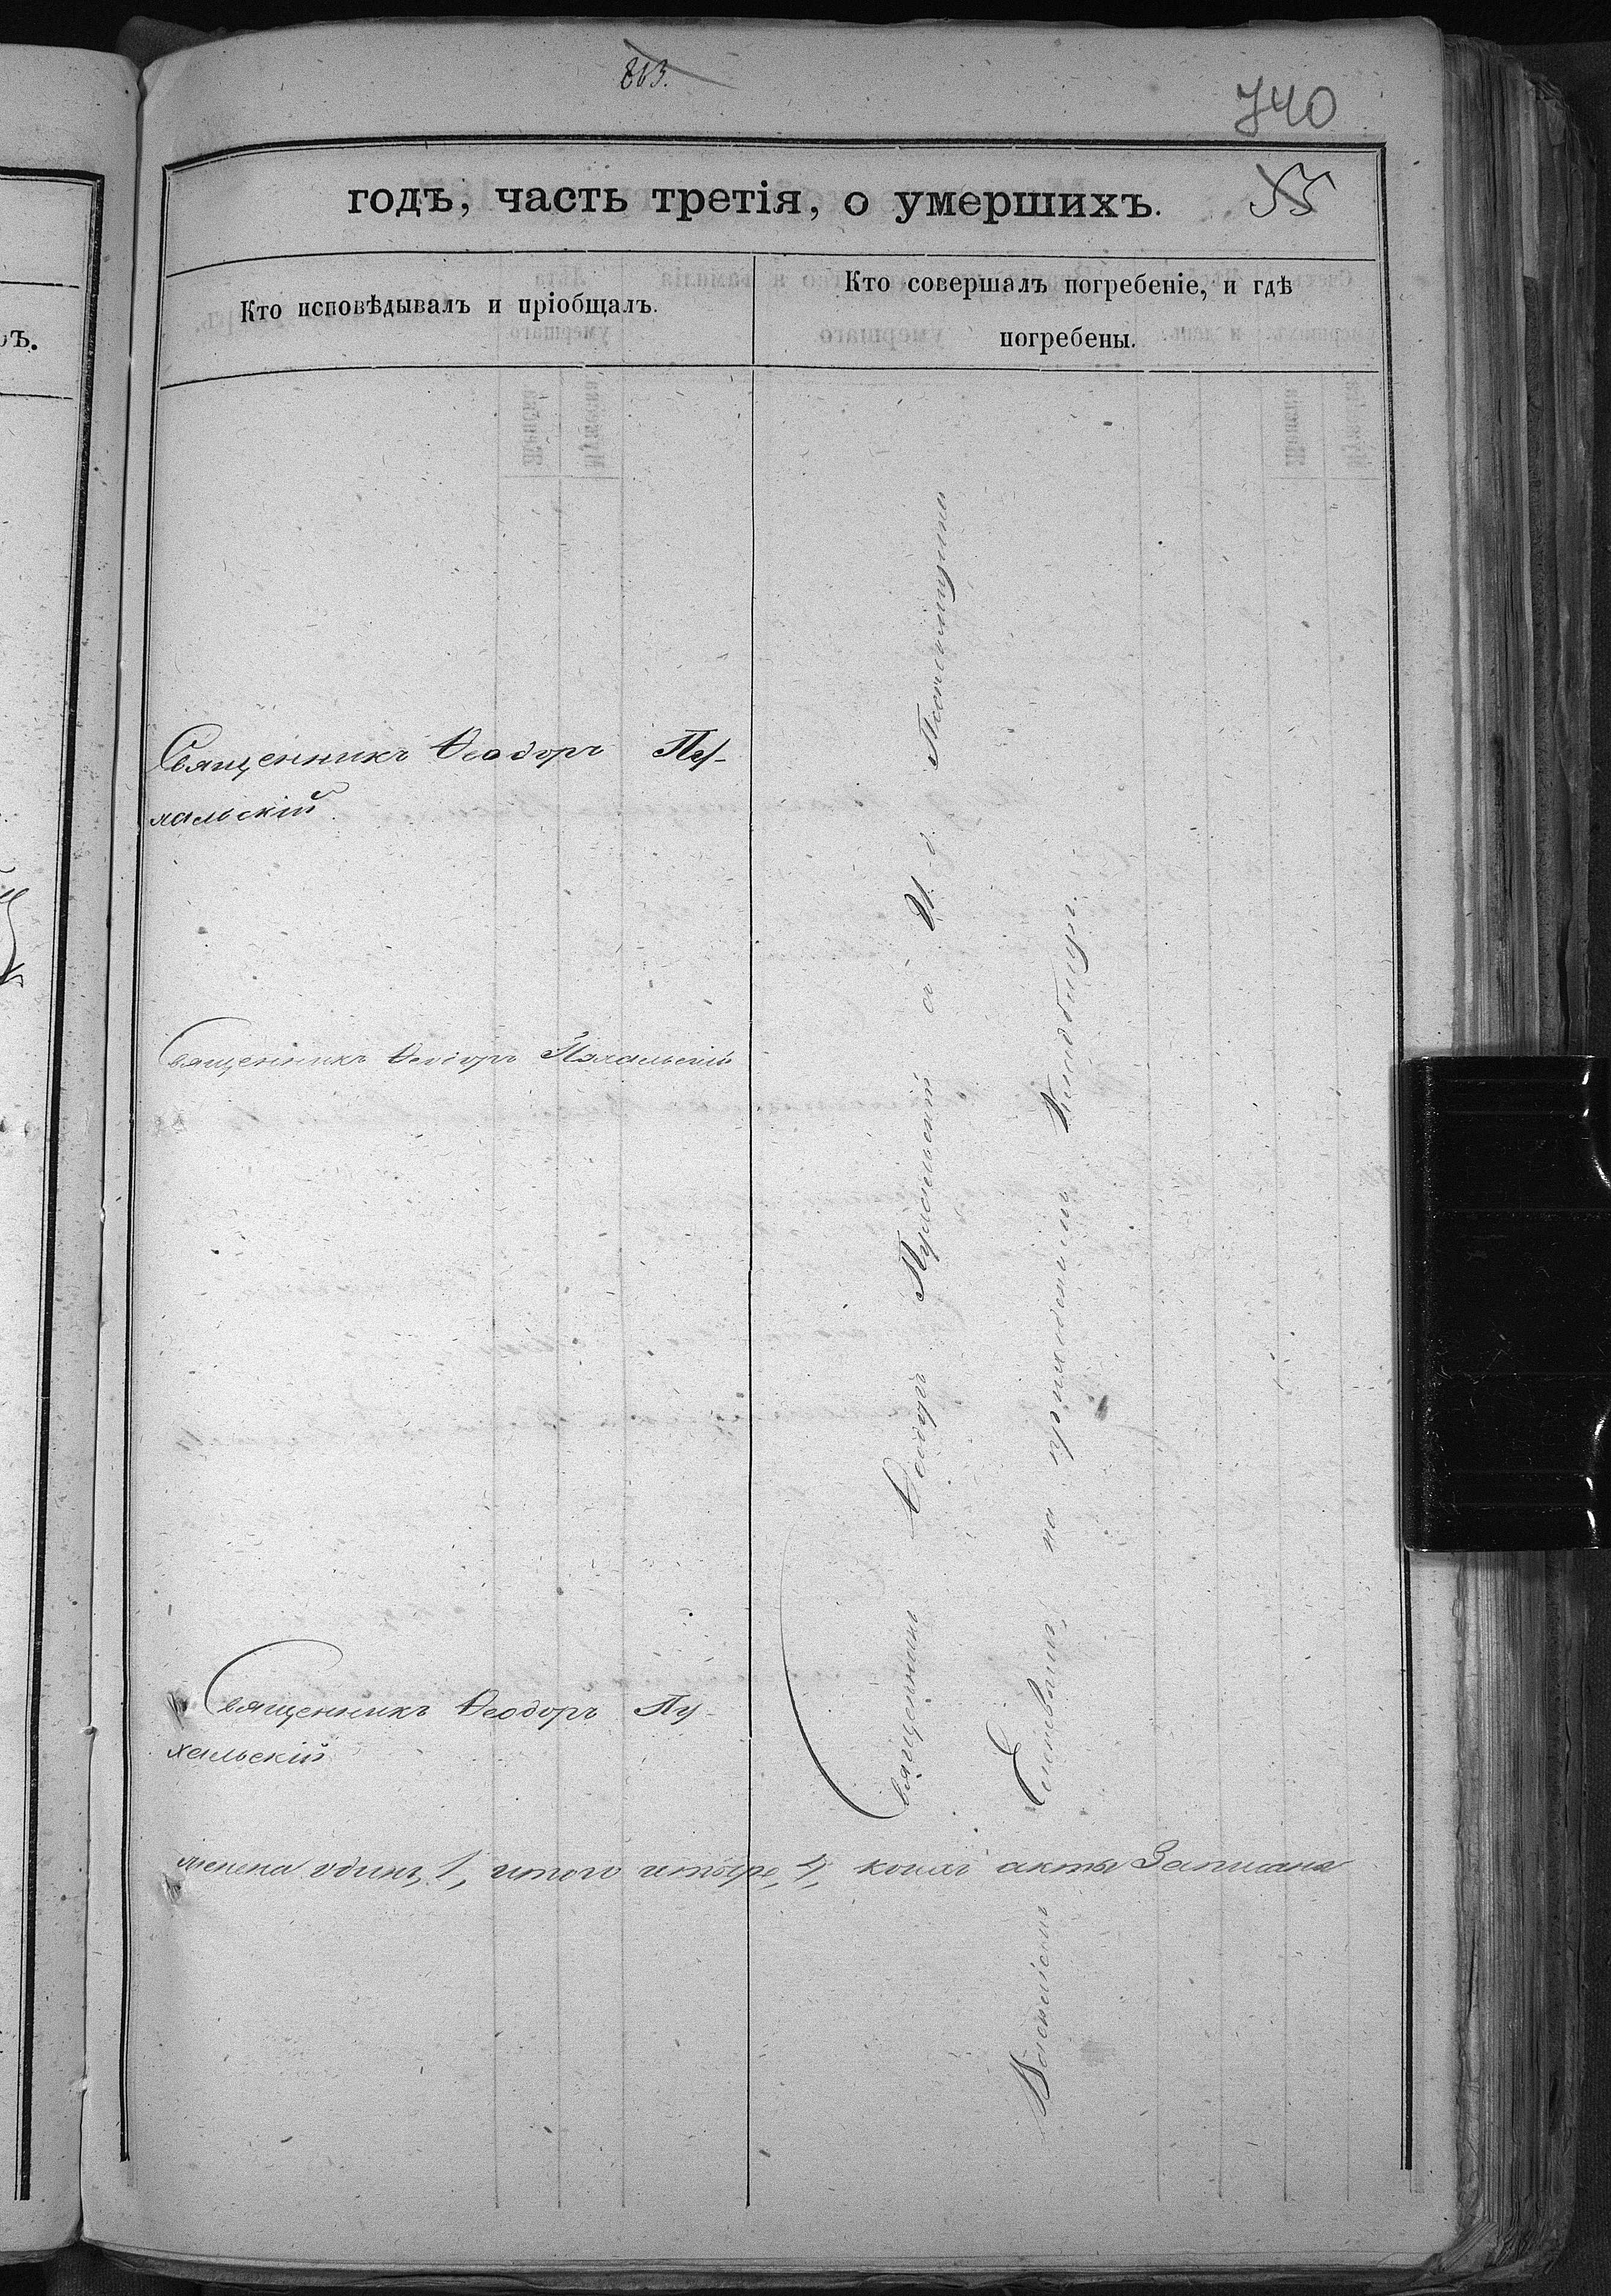 863.
740
годъ, часть третія, о умершихъ.
55
Кто исповѣдывалъ и пріобщалъ.
Кто совершалъ погребеніе, и гдѣ
погребены.
Священникъ Ѳеодоръ Пу-
хальскій
Священникъ Ѳеодоръ Пухальскій
Священникъ Ѳеодоръ Пу-
хальскій
Священникъ Ѳеодоръ Пухальскій съ И. д. Псаломщика
Василіемъ на приходскомъ Кладбищѣ.
женска одинъ, 1, итого четыре, 4, коихъ акты Записаны